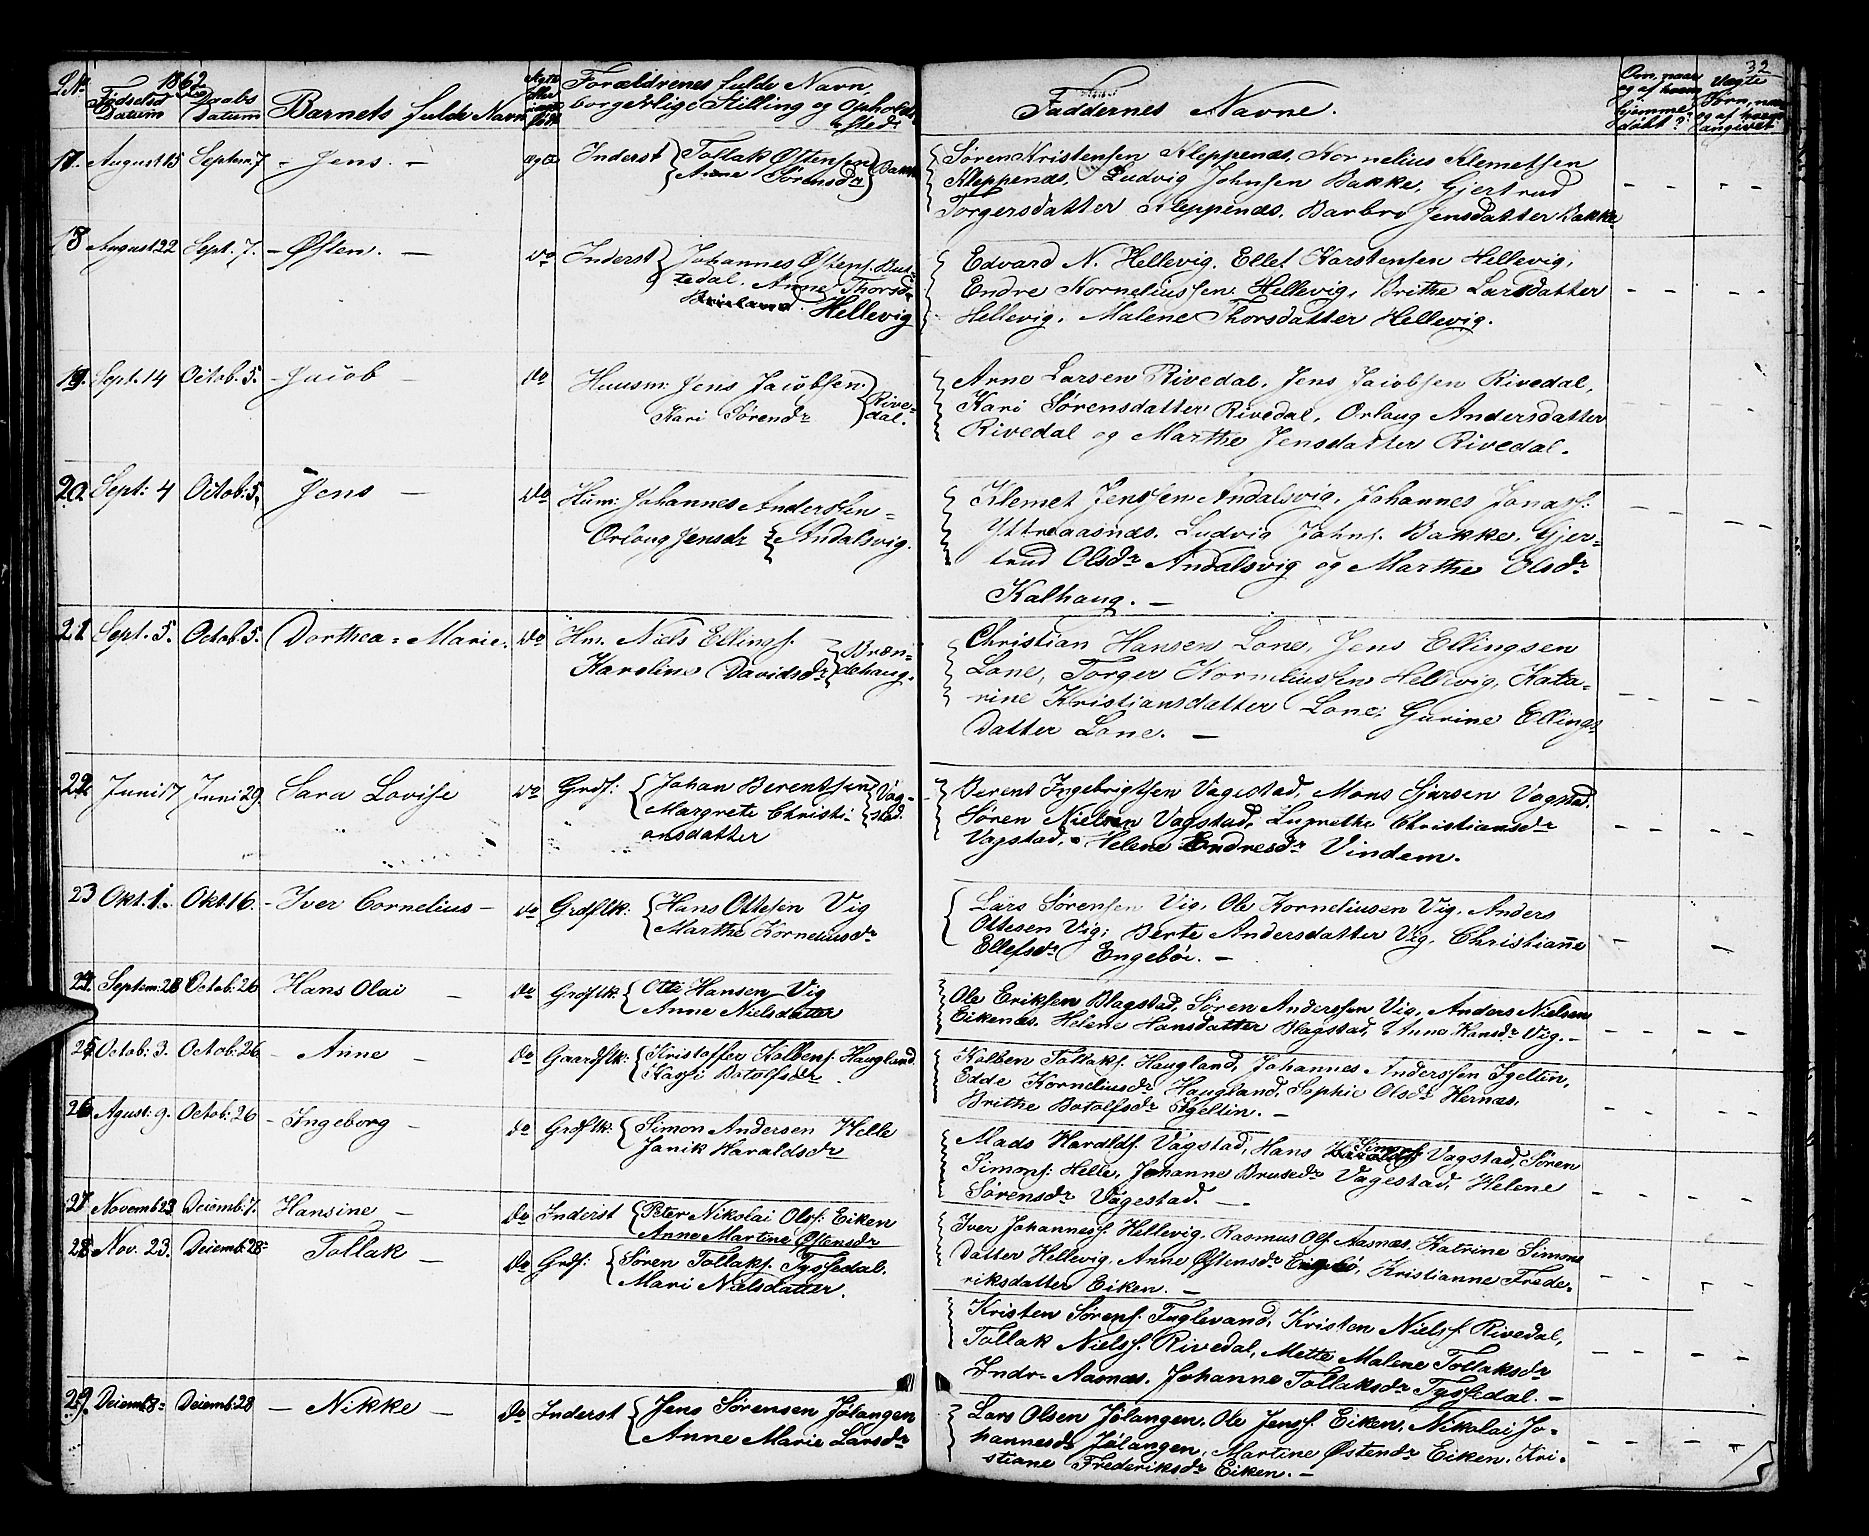 1862
32
No Fødselsd Datum
Daabs Datum
Barnets fulde Navn
Ægte eller uægte født
Forældrenes fulde Navn,
borgerlige Stilling og Opholds-
sted.
Faddernes Navne.
Om, naar og af hvem hjemme døbt?
17. August 15 Septem 7 - Jens. - ægte Inderst Tollak Østensen Anne Sørensdr Bakke
Søren Kristensen Kleppenæs, Kornelius Klemetsen
Kleppenæs, Ludvig Johnsen Bakke, Gjertrud
Torgersdatter Kleppenæs, Barbro Jensdatter Bakke
18 August 22 Sept. 7. - Østen. - do Inderst Johannes Østens.
Anne Thorsdr
Hellevig
Edvard N. Hellevig. Ellef Karstensen Hellevig,
Endre Korneliussen Hellevig, Brithe Larsdatter
Hellevig, Malene Thorsdatter Hellevig.
19. Sept. 14 Octob. 5. - Jacob - do Huusm. Jens Jacobsen
Kari Sørensdr Rivedal.
Arne Larsen Rivedal, Jens Jacobsen Rivedal,
Kari Sørensdatter Rivedal, Orlaug Andersdatter
Rivedal og Marthe Jensdatter Rivedal.
20. Sept: 4 Octob: 5. Jens - do Husm: Johannes Anderssen
Orlaug Jensdr Andalsvig.
Klemet Jenssen Andalsvig, Johannes Jonass.
Yttreaasnæs. Ludvig Johns. Bakke, Gjer-
trud Olsdr Andalsvig og Marthe Olsdr
Kalhaug. -
21 Sept. 5. Octob 5. Dorthea = Marie. do Hm. Niels Ellings.
Karoline Davidsdr Bræn-
dehaug.
Christian Hansen Lone, Jens Ellingsen
Lone, Torger Korneliussen Hellevig, Kata-
rine Kristiansdatter Lone; Gurine Ellings-
datter Lone. -
22 Juni 17 Juni 29. Sara Lovise do Grdf: Johan Berentsen
Margrete Christi-
ansdatter
Vag-
stad.
Berent Ingebrigtsen Vagestad, Mons Vagstad,
Søren Nielsen Vagstad, Christiansdr
Vagstad, Helene Endresdr Vindem.
23 Okt. 1. Okt. 16. - Iver Cornelius - do Grdflk: Hans Ottesen Vig
Marthe Korneliusdr
Lars Sørensen Vig, Ole Korneliusen Vig, Anders
Ottesen Vig; Berte Andersdatter Vig, Christianne
Ellefsdr Engebøi. -
24. Septem: 28 Octob: 26 Hans Olai - do Grdflk: Otte Hansen Vig
Anne Nielsdatter
Ole Eriksen Blagstad, Søren Anderssen Vig, Anders Nielsen
Eikenæs, Helene Hansdatter Blagstad, Anne Hansdr Vig. -
25 Octob: 3. Octob: 26 - Anne - do Gaardflk: Kristoffer Kolbens. Haugland
Kassi Botolfsdr
Kolben Tollaks. Haugland, Johannes Anderssen Igeltin,
Edde Korneliusdr Haugland, Sophie Olsdr Hernæs,
Brithe Botolfsdr Igeltin. -
26 Agust: 9. Octob: 26 - Ingeborg - do Grdflk: Simon Andersen Helle
Janik Haraldsdr
Mads Haralds. Vagstad, Hans Simons. Vagstad, Søren
Simons. Helle, Johanne Brusedr Vagestad, Helene
Sørensdr Vagestad. -
27 Novemb 23 Decemb. 7. Hansine - do Inderst Peter Nikolai Ols. Eiken
Anne Martine Østensdr
Iver Johanness. Hellevig, Rasmus Ols. Aasnæs, Katrine Simons
datter Hellevig, Anne Østensdr Engebø, Kristianne Frede-
riksdatter Eiken. -
28 Nov. 23. Decemb: 28 - Tollak - do Grdf: Søren Tollaks. Tyssedal.
Mari Nielsdatter.
Kristen Sørens. Fuglevand, Kristen Niels. Rivedal,
Tollak Niels. Rivedal, Mette Malene Tollaksdr
Indr. Aasnæs. Johanne Tollaksdr Tyssedal. -
29. Decemb 8 Decemb: 28 - Nikke - do Inderst Jens Sørensen Jølangen
Anne Marie Larsdr
Lars Olsen Jølangen, Ole Jens. Eiken, Nikolai Jo-
hannesdr Jølangen, Martine Østendr Eiken. Kri-
stiane Frederiksdr Eiken. -